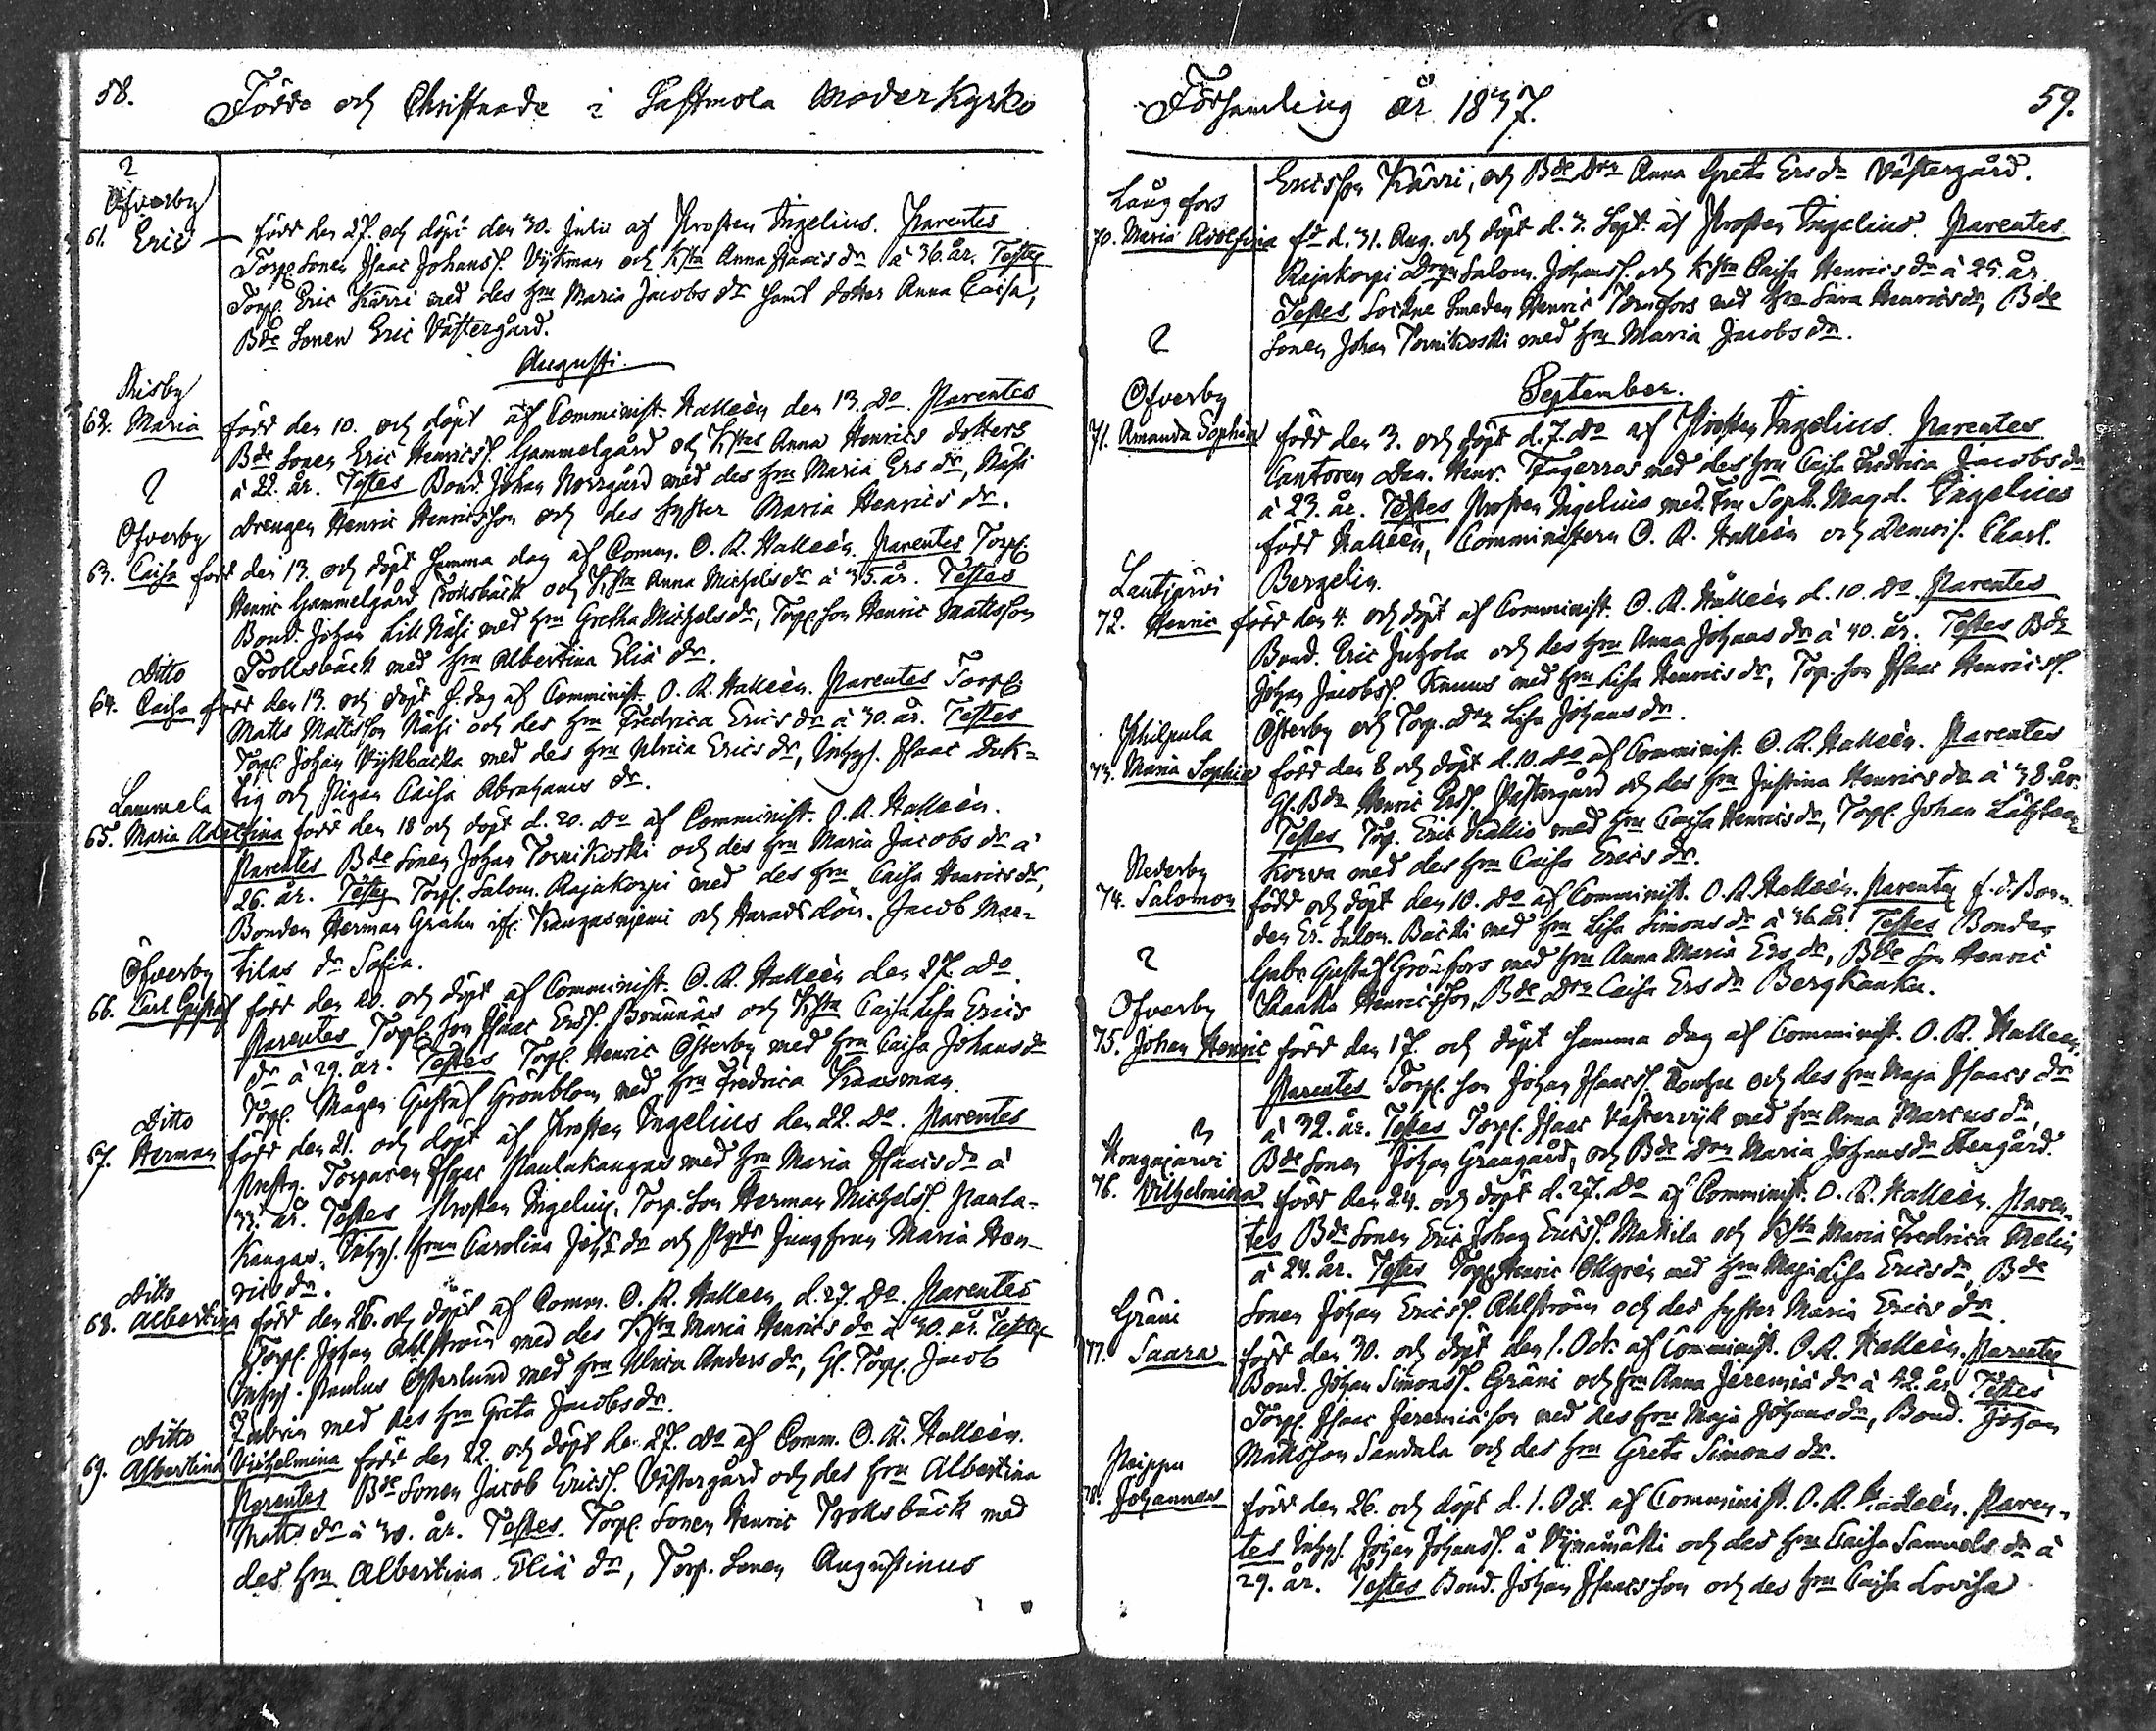 58.
Födde och Christnade i Sastmola Moder Kyrko
Öfverby
61. Eric
född den 27. och döpt den 30. Julii af Prosten Ingelius. Parentes
Torp. Sonen Isaac Johanss. Vykman och Hsta Anna Isaacs dr à 36. år. Testes
Torp. Eric Kärri med des hru Maria Jacobs dr samt dotter Anna Caisa,
Bde Sonen Eric Västergård.
Augusti.
Risby
62. Maria
född den 10. och döpt af Comminist. Halleèn den 13. do. Parentes
Bde Sonen Eric Henricss. Gammelgård och Hstes Anna Henrics dotters
à 22. år. Testes Bond. Johan Norrgård med des hru Maria Ers dr, Näsi
drengen Henric Henricsson och des syster Maria Henrics dr.
Öfverby
63. Caisa född den 13. och döpt samma dag af Comm. O. R. Halleèn. Parentes Torp.
Henric Gammelgård Trollsbäck och Hsta Anna Michels dr à 35. år. Testes
Bond. Johan Lill Näsi med hru Gretha Michels dr, Torp. son Henric Mattsson
Trollsbäck med hru Albertina Elia dr.
Ditto
64. Caisa född den 13. och döpt s. dag af Comminist. O. R. Halleèn. Parentes Torp.
Matts Mattsson Näsi och des hru Fredrica Erics dr à 30. år. Testes
Torp. Johan Vykbacka med des hru Ulrica Erics dr, Inhys. Isaac Duk-
tig och Pigan Caisa Abrahams dr.
Lammela
65. Maria Adolfina född den 18 och döpt d. 20. do af Comminist. O. R. Halleèn.
Parentes Bde Sonen Johan Tornikoski och des hru Maria Jacobs dr à
26. år. Testes Torp. Salom. Rajakorpi med des hru Caisa Henrics dr,
Bonden Herman Grahn ifr. Kangasniemi och Härads dön. Jacob Mar-
tilas dr Sofia.
Öfverby
66. Carl Gustaf född den 20. och döpt af Comminist. O. R. Halleèn den 27. do
Parentes Torp. son Isaac Erss. Brännäs och Hsta Caisa Lisa Erics
dr à 29. år. Testes Torp. Henric Österby med hru Caisa Johans dr
Torp. Mågen Gustaf Grönblom med hru Fredrica Kaasman.
Ditto
67. Herman född den 21. och döpt af Prosten Ingelius den 22. do. Parentes
Prestg. Torparen Isaac Paulakangas med hru Maria Isaacs dr à
33. år. Testes Prosten Ingelius, Torp. son Herman Michelss. Paula-
kangas, Inhys. hrun Carolina Johs dr och Pgds Jungfrun Maria Hen-
rics dr.
Ditto
68. Albertina född den 26. och döpt af Comm. O. R. Halleèn d. 27. do. Parentes
Torp. Johan Ahlström med des Hsta Maria Henrics dr à 30. år. Testes
Inhys. Paulus Österlund med hru Ulrica Anders dr, Gl. Torp. Jacob
med des hru Greta Jacobs dr.
Ditto
69. Albertina Vilhelmina född den 22. och döpt den 27. do af Comm. O. R. Halleèn.
Parentes Bde Sonen Jacob Ericss. Västergård och des hru Albertina
Matts dr à 30. år. Testes. Torp. Sonen Henric Trollsbäck med
des hru Albertina Elia dr, Torp. Sonen Augustinus
Församling år 1837.
59.
Ericsson Kärri, och Bde Drn Anna Greta Ers dr Västergård.
Lång fors
70. Maria Adolfina fd d. 31. Aug. och döpt d. 3. Sept. af Prosten Ingelius. Parentes
Rajakorpi Drgn Salom. Johanss. och Hstn Caisa Henrics dr à 25. år.
Testes Sockne Smeden Henric Tornfors med hru Sara Henrics dr, Bde
Sonen Johan Tornikoski med hru Maria Jacobs dr.
September.
Öfverby
71. Amanda Sophia född den 3. och döpt d. 7. do af Prosten Ingelius. Parentes
Cantoren Dan. Henr. Fagerroos med des hru Caisa Fredrica Jacobs dr
à 23. år. Testes Prosten Ingelius med Fru Soph. Magd. Ingelius
född Halleèn, Comministern O. R. Halleèn och Demois. Charl.
Bergelin.
Lautjärvi
72. Henric född den 4. och döpt af Comminist. O. R. Halleèn d. 10. do. Parentes
Bond. Eric Juhola och des hru Anna Johans dr à 40. år. Testes Bde
Johan Jacobss. Knuus med hru Lisa Henrics dr, Torp. son Isaac Henricss.
Österby och Torp. Drn Lisa Johans dr.
Philpula
73. Maria Sophia född den 8 och döpt d. 10. do af Comminist. O. R. Halleèn. Parentes
Gl. Bde Henric Erss. Västergård och des hru Justina Henrics dr à 38. år.
Testes Torp. Eric Kallio med hru Caisa Henrics dr, Torp. Johan
Korva med des hru Caisa Erics dr.
Nederby
74. Salomon född och döpt den 10. do af Comminist. O. R. Halleèn. Parentes f. d. Bon-
den Er. Salom. Backi med hru Lisa Simons dr à 36. år. Testes Bonden
Gabr. Gustaf Grönfors med hru Anna Maria Ers dr, Bde son Henric
Kanka Henricsson, Bde Drn Caisa Ers dr Bergkanka.
Öfverby
75. Johan Henric född den 17. och döpt samma dag af Comminist. O. R. Halleèn.
Parentes Torp. son Johan Isaacss. och des hru Maja Isaacs dr
à 32. år. Testes Torp. Isaac Västervyk med hru Anna Marcus dr,
Bde Sonen Johan Graugård, och Bde Drn Maria Johans dr Stengård.
Hongajärvi
76. Vilhelmina född den 24. och döpt d. 27. do af Comminist. O. R. Halleèn. Paren-
tes Bde Sonen Eric Johan Ericss. Mattila och Hsta Maria Fredrica Melin
à 24. år. Testes Torp. Henric Ollgrén med hru Maja Lisa Erics dr, Bde
Sonen Johan Ericss. Ahlström och des syster Maria Erics dr.
Gräni
77. Saara född den 30. och döpt den 1. Oct. af Comminist. O. R. Halleèn. Parentes
Bond. Johan Simonss. Gräni och hru Anna Jeremia dr à 42. år. Testes
Torp. Isaac Jeremiasson med des hru Maja Johans dr, Bond. Johan
Mattsson Sandala och des hru Greta Simons dr.
Peippu
78. Johannes född den 26. och döpt d. 1. Oct. af Comminist. O. R. Halleèn. Paren-
tes Inhys. Johan Johanss. å Vijnamäki och des hru Caisa Samuels dr à
29. år. Testes Bond. Johan Isaacsson och des hru Caisa Lovisa